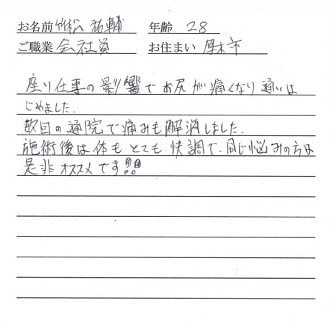 お名前 竹松 祐輔 年齢 28
ご職業 会社員 お住まい 厚木市
座り仕事の影響でお尻が痛くなり通いは
じめました。
数回の通院で痛みも解消しました。
施術後は体もとても快調で、同じ悩みの方は
是非オススメです!!